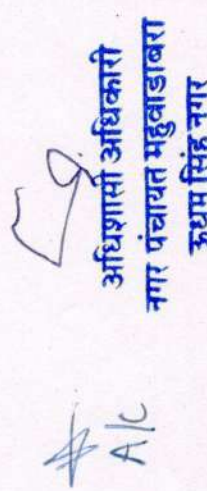 अधिशासी अधिकारी
नगर पंचायत महुवाडाबरा
ऊधम सिंह नगर
A/c